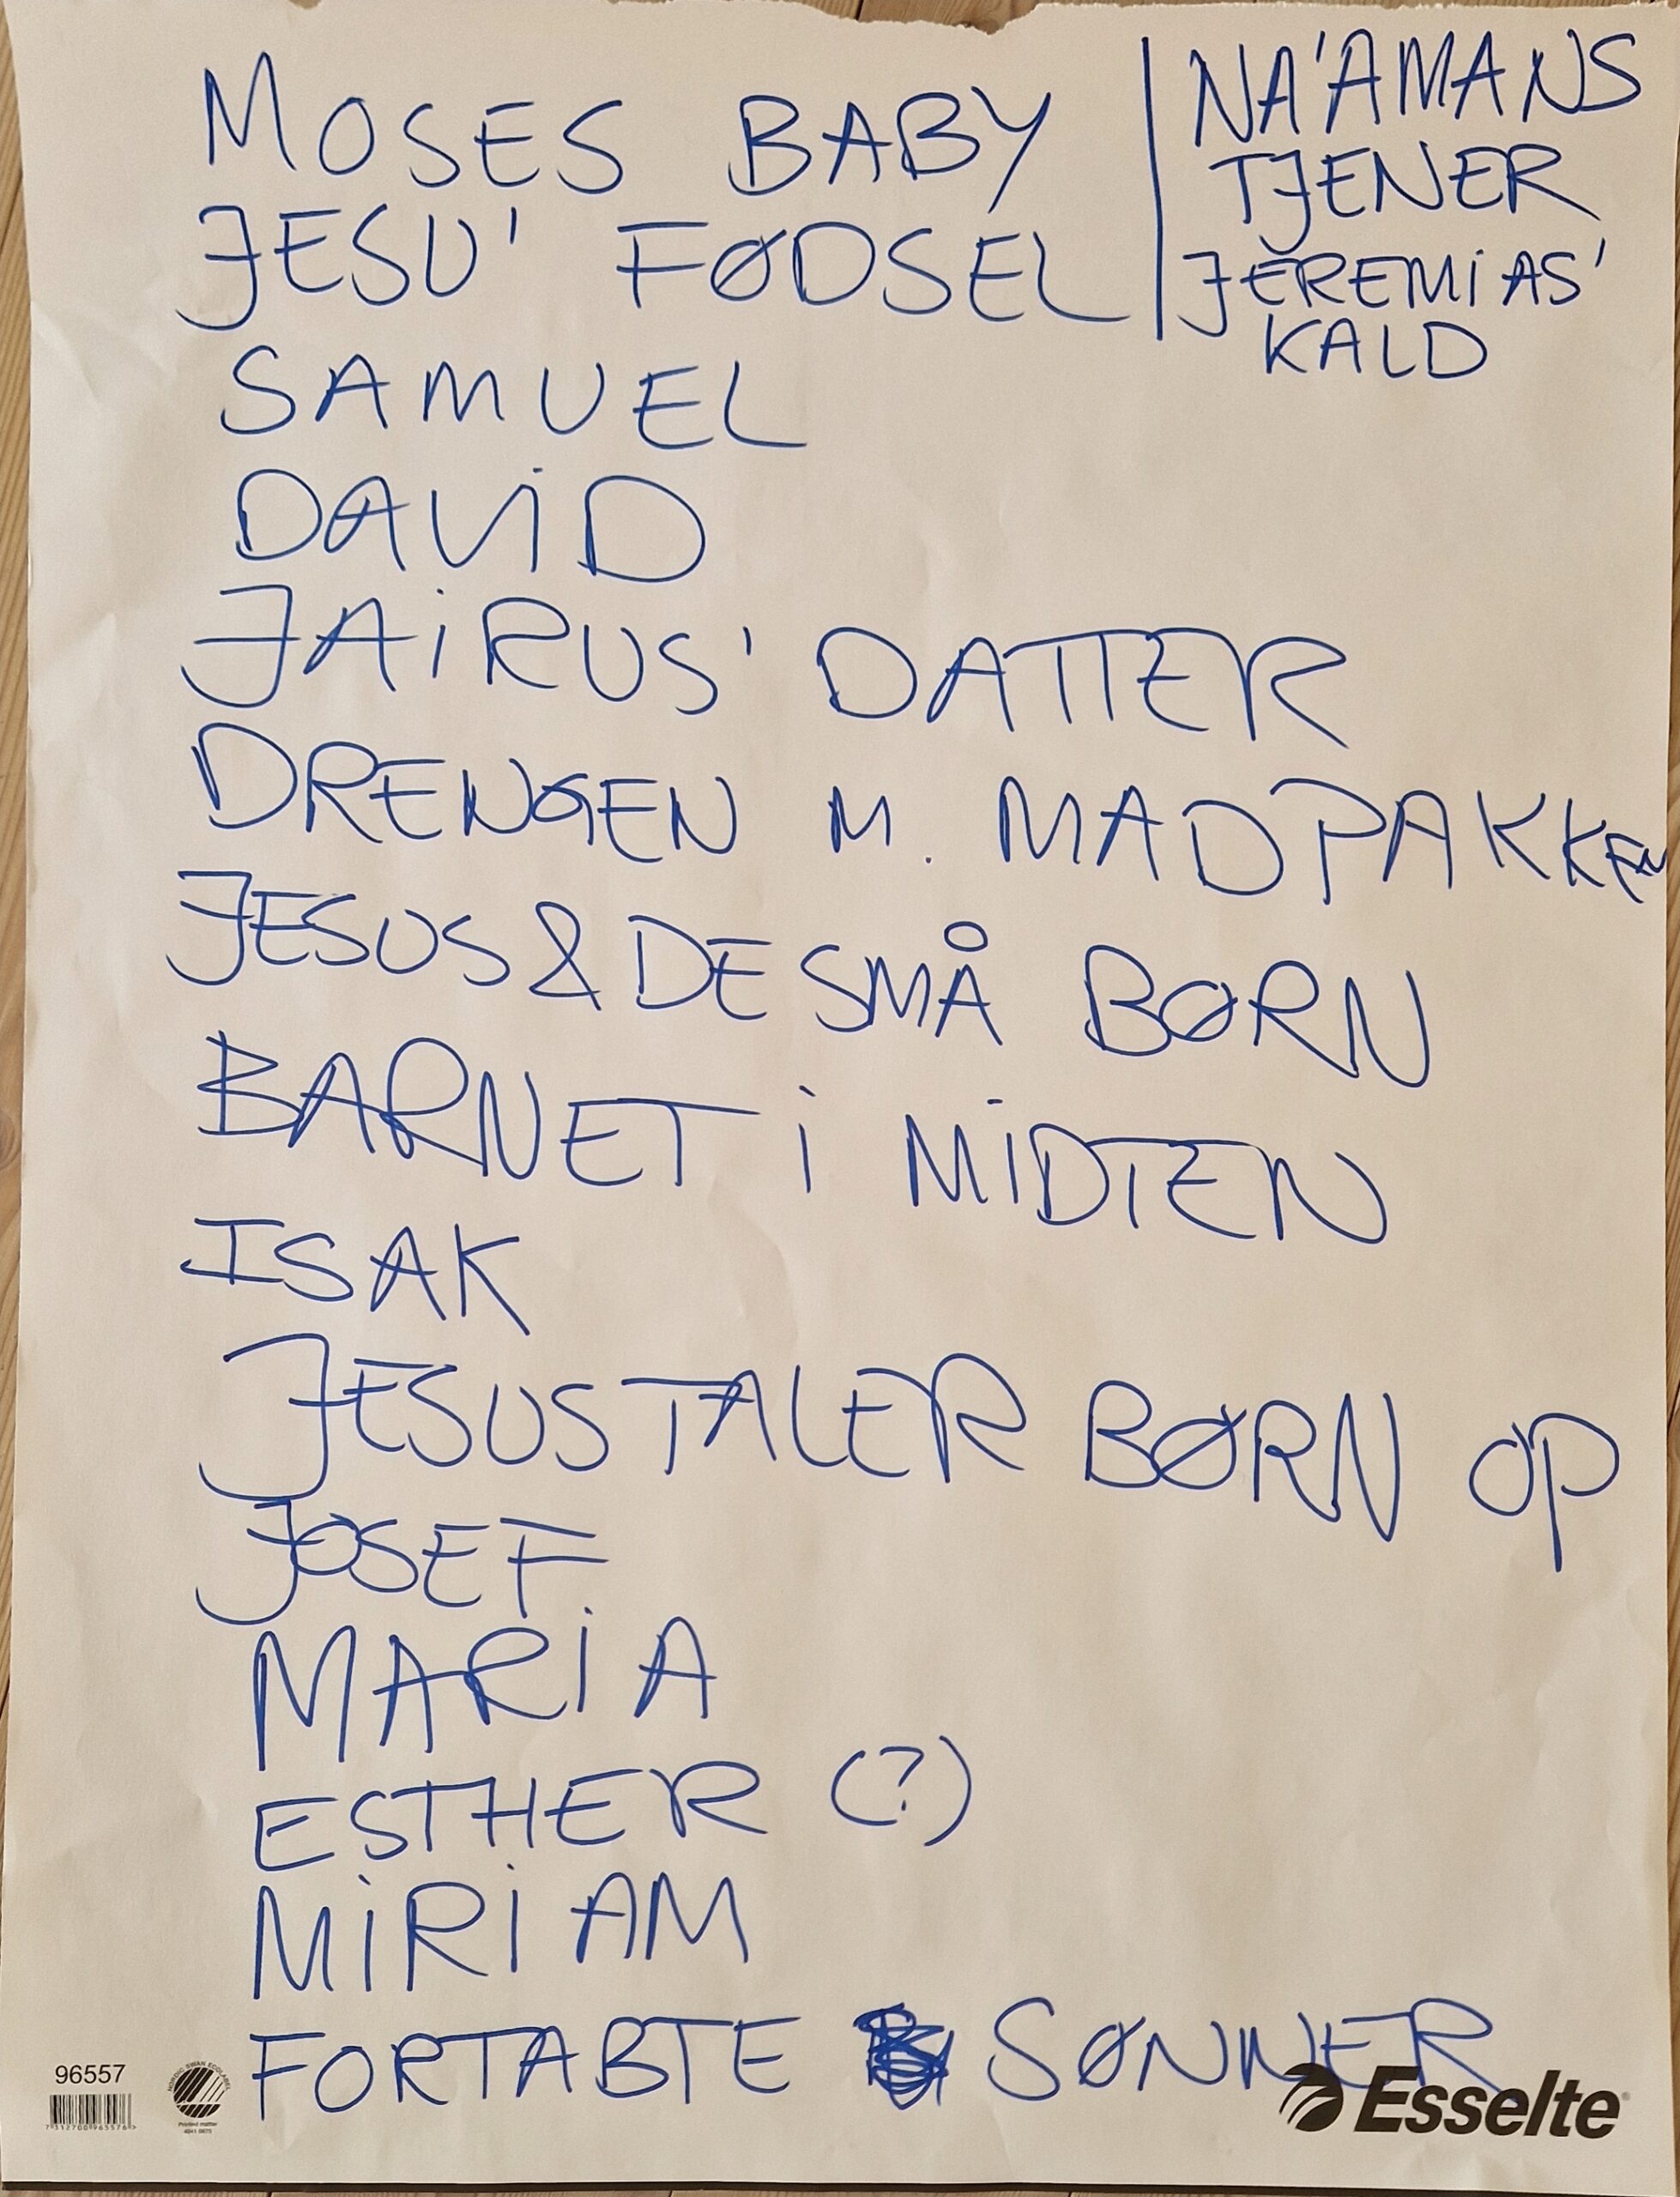 MOSES BABY
JESU' FØDSEL
NA'AMANS
TJENER
JEREMiAS'
KALD
SAMUEL
DAViD
JAiRUS' DATTER
DRENGEN M. MADPAKKEN
JESUS & DE SMÅ BØRN
BARNET i MiDTEN
ISAK
JESUS TALER BØRN OP
JOSEF
MARiA
ESTHER (?)
MiRiAM
FORTABTE SØNNER
96557
Esselte